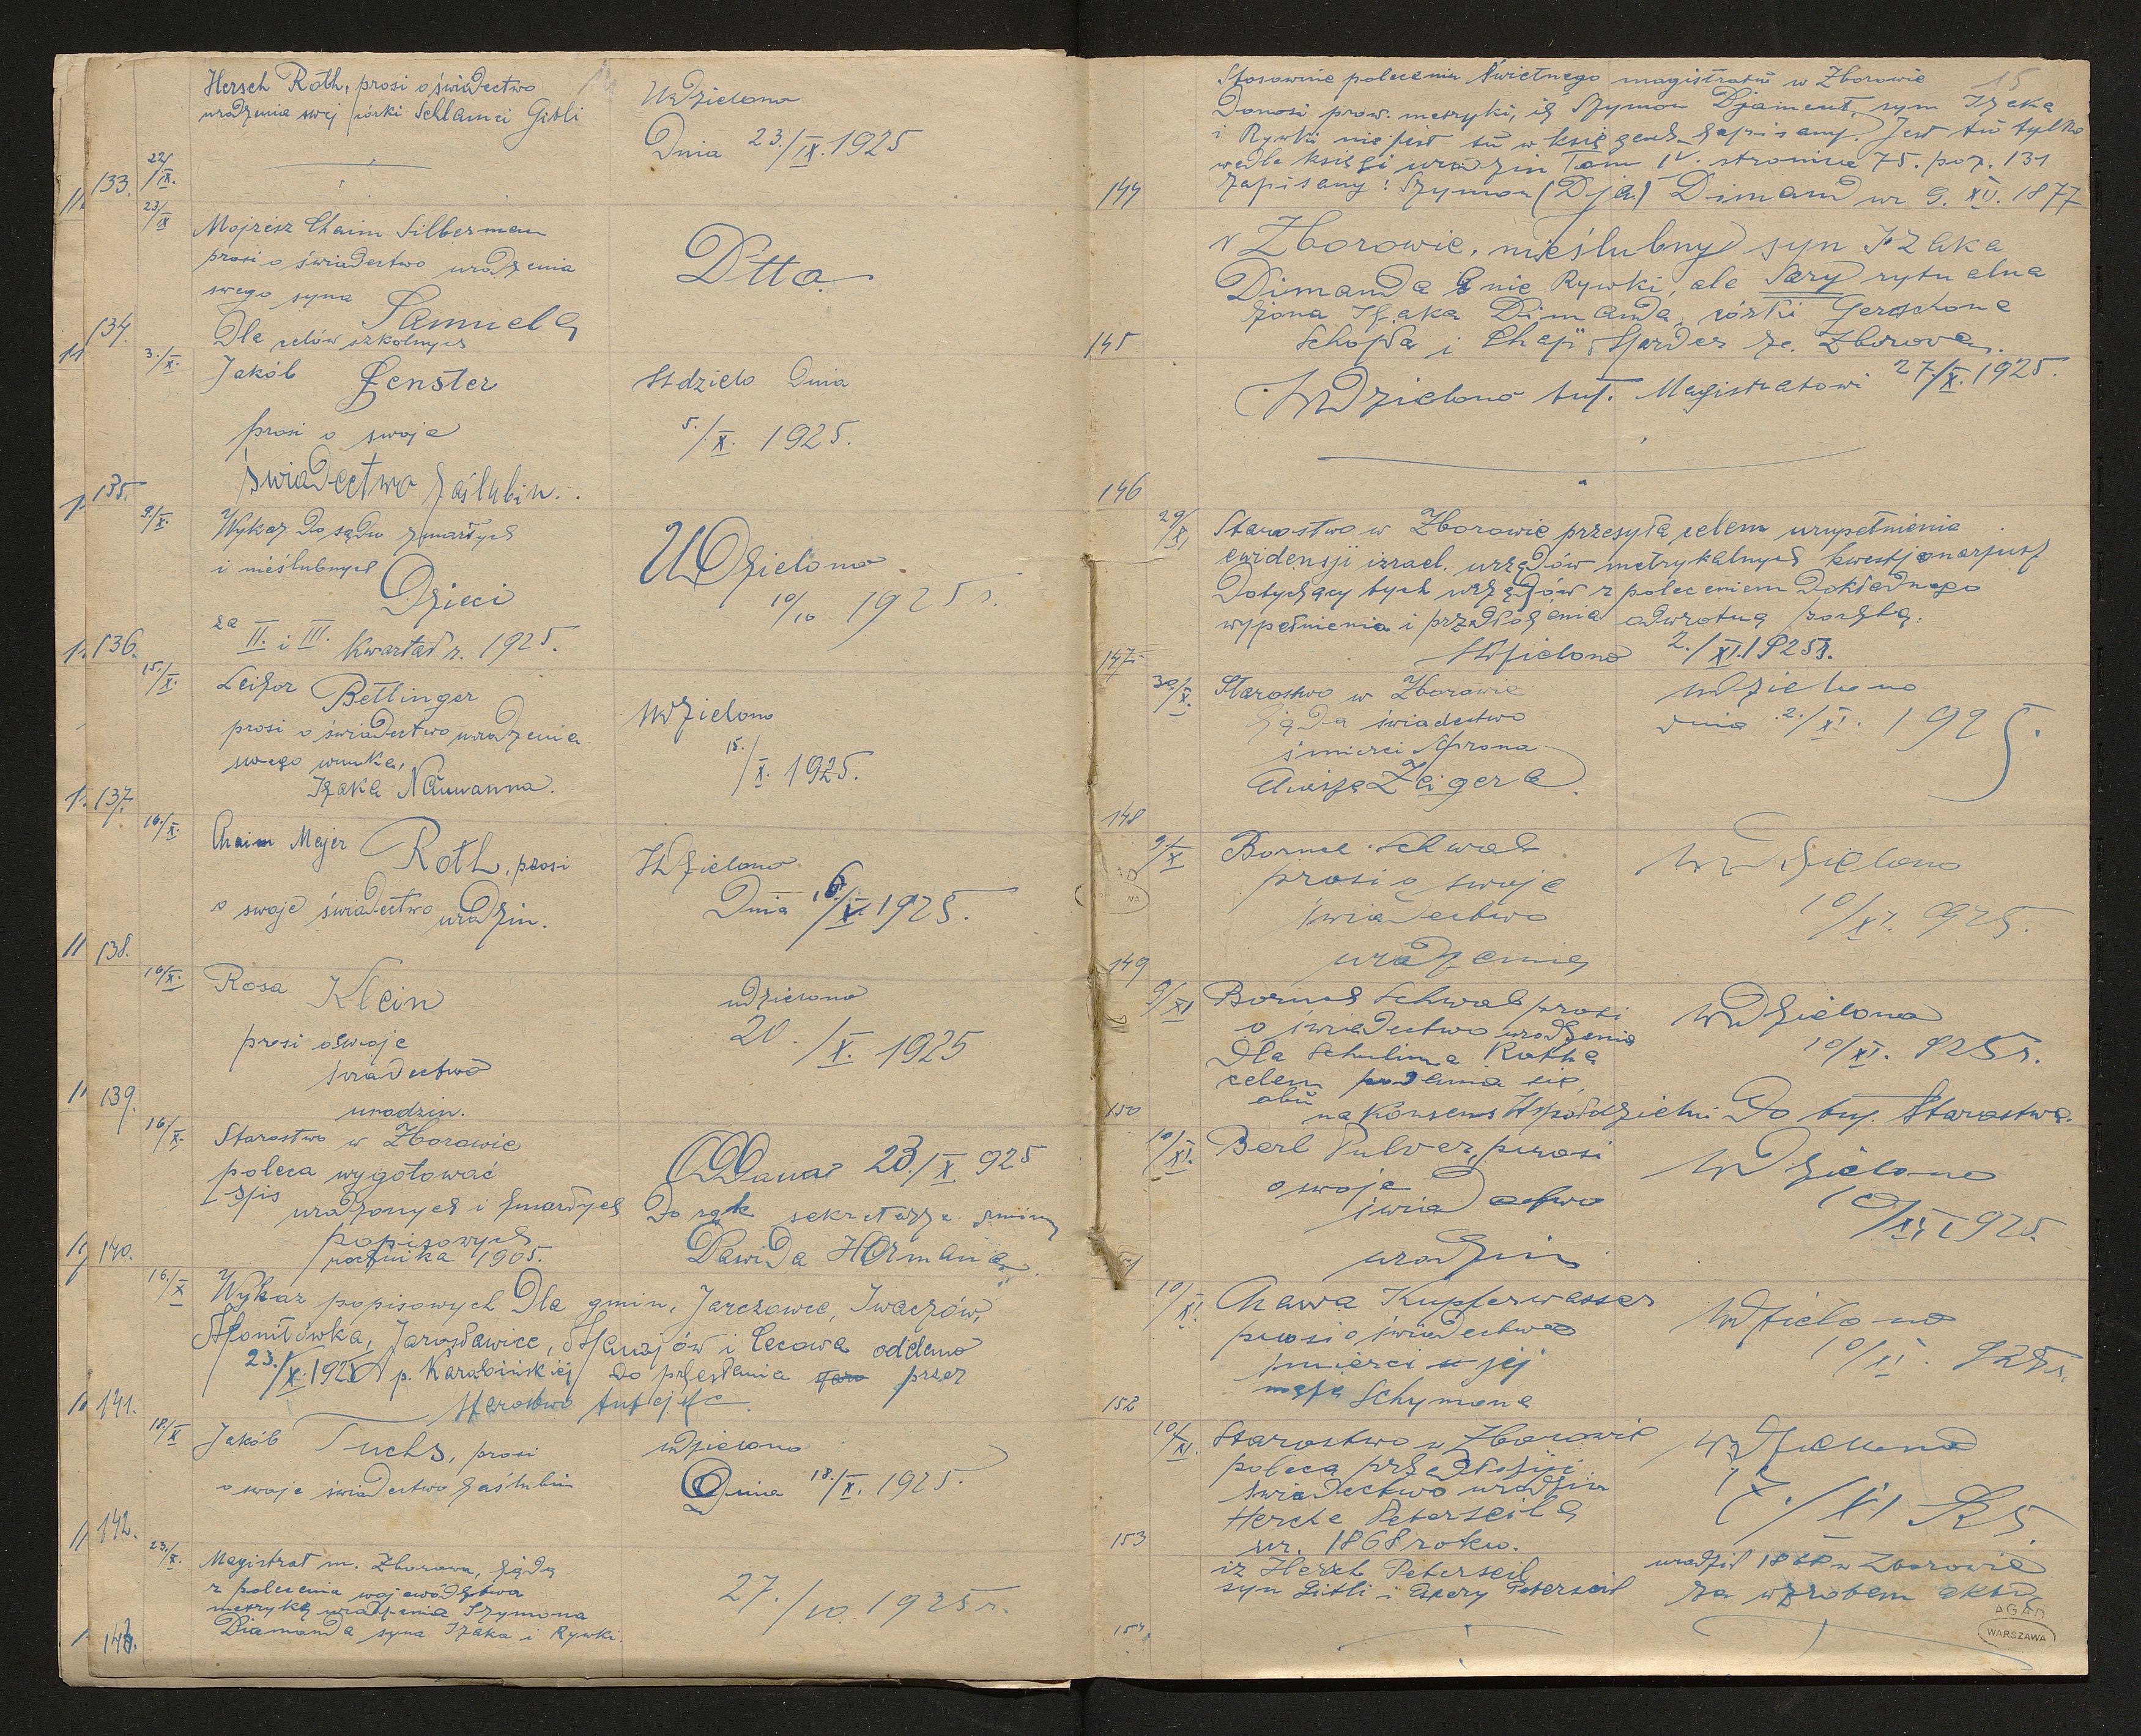 Hersch Roth, prosi o świadectwo
urodzenia swej córki Schlamci Gitli
Udzielono
Dnia 23./IX. 1925
133.
22/IX.
23/IX
Mojżesz Chaim Silberman
prosi o świadectwo urodzenia
swego syna
Samuela
Dla celów szkolnych
Dtto.
134.
3./X.
Jakób Fenster
prosi o swoje
świadectwo zaślubin.
Udzielo Dnia
5./X. 1925.
135.
9./X.
Wykaz do sądu zmarłych
i nieślubnych
Dzieci
za II. i III. Kwartał r. 1925.
Udzielono
10/10 1925 r.
136.
15./X.
Leizor Bettinger
prosi o świadectwo urodzenia
swego wnuka,
Izaka Nauwanna.
Udzielono
15./X. 1925.
137.
16./X.
Chaim Mejer Roth, prosi
o swoje świadectwo urodzin.
Udzielono
Dnia 16/X. 1925.
138.
16/X.
Rosa Klein
prosi o swoje
świadectwo
urodzin.
udzielono
20./X. 1925
139.
16/X.
Starostwo w Zborowie
poleca wygotować
spis
urodzonych i zmarłych
popisowych
rocznika 1905.
Oddano 23./X 925
Do rąk sekretarza gminy
Dawida Hormana
140.
16./X
Wykaz popisowych Dla gmin, Jarczowce, Iwaczów,
Młonitówka, Jarosławice, Manajów i Cecowa oddano
23./X. 1925 p. Karabińskiej do przesłania przez
starostwo tutejsze
141.
18./X
Jakób Fuchs, prosi
o swoje świadectwo zaślubin
udzielono
Dnia 18./X. 1925.
142.
23./X.
Magistrat m. Zborowa, żąda
z polecenia województwa
metrykę urodzenia Szymona
Diamanda syna Izaka i Rywki.
27./10. 1925 r.
143.
15
Stosownie poleceniu Świetnego magistratu w Zborowie
Donosi prow. metryki, iż Szymon Djament, syn Izaka
i Rywki nie jest tu w księgach zapisany. Jest tu tylko
wedle księgi urodzin Tom IV. stronica 75. poz. 131
144
zapisany: Szymon (Dja) Dimand ur 9. XII. 1877
w Zborowie, nieślubny syn Izaka
Dimanda i nie Rywki, ale Sary rytualna
żona Izaka Dimanda, córki Gerschona
145
Schopfa i Chaji Marder ze Zborowa.
Udzielono tut. Magistratowi 27./X. 1925.
146
29/X.
Starostwo w Zborowie przesyła celem uzupełnienia
ewidensji izrael. urzędów metrykalnych kwestjonarjusz
Dotyczący tych urzędów z poleceniem Dokładnego
wypełnienia i przedłożenia odwrotną pocztą.
Udzielono 2./XI. 1925 r.
147.
30./X.
Starostwo w Zborowie
żąda świadectwo
śmierci Arona
Zeigera
udzielono
dnia 2./XI. 1925.
148
9/X
Schwab
prosi o swoje
świadectwo
urodzenia
Udzielono
10/XI. 925.
149
9/XI
Schwab prosi
o świadectwo urodzenia
Dla Schulima Rotha
celem podania się
obu
na konsens Współdzielni Do tuj. Starostwa.
Udzielono
10/XI. 925 r.
150
10/XI.
Berl Pulver, prosi
o swoje
świadectwo
urodzin
Udzielono
10/XI. 1925.
10/XI.
Chawa Kupferwasser
prosi o świadectwo
śmierci jej
męża Schymona
Udzielono
10/XI. 925 r.
152
10/XI.
Starostwo w Zborowie
poleca przedłożyć
świadectwo urodzin
Hersche Peterseila
ur. 1868 roku.
Udzielono
153
iż Hersch Peterseil
syn Gitli i Peterseil
urodził 1868 w Zborowie
154.
AGAD
WARSZAWA